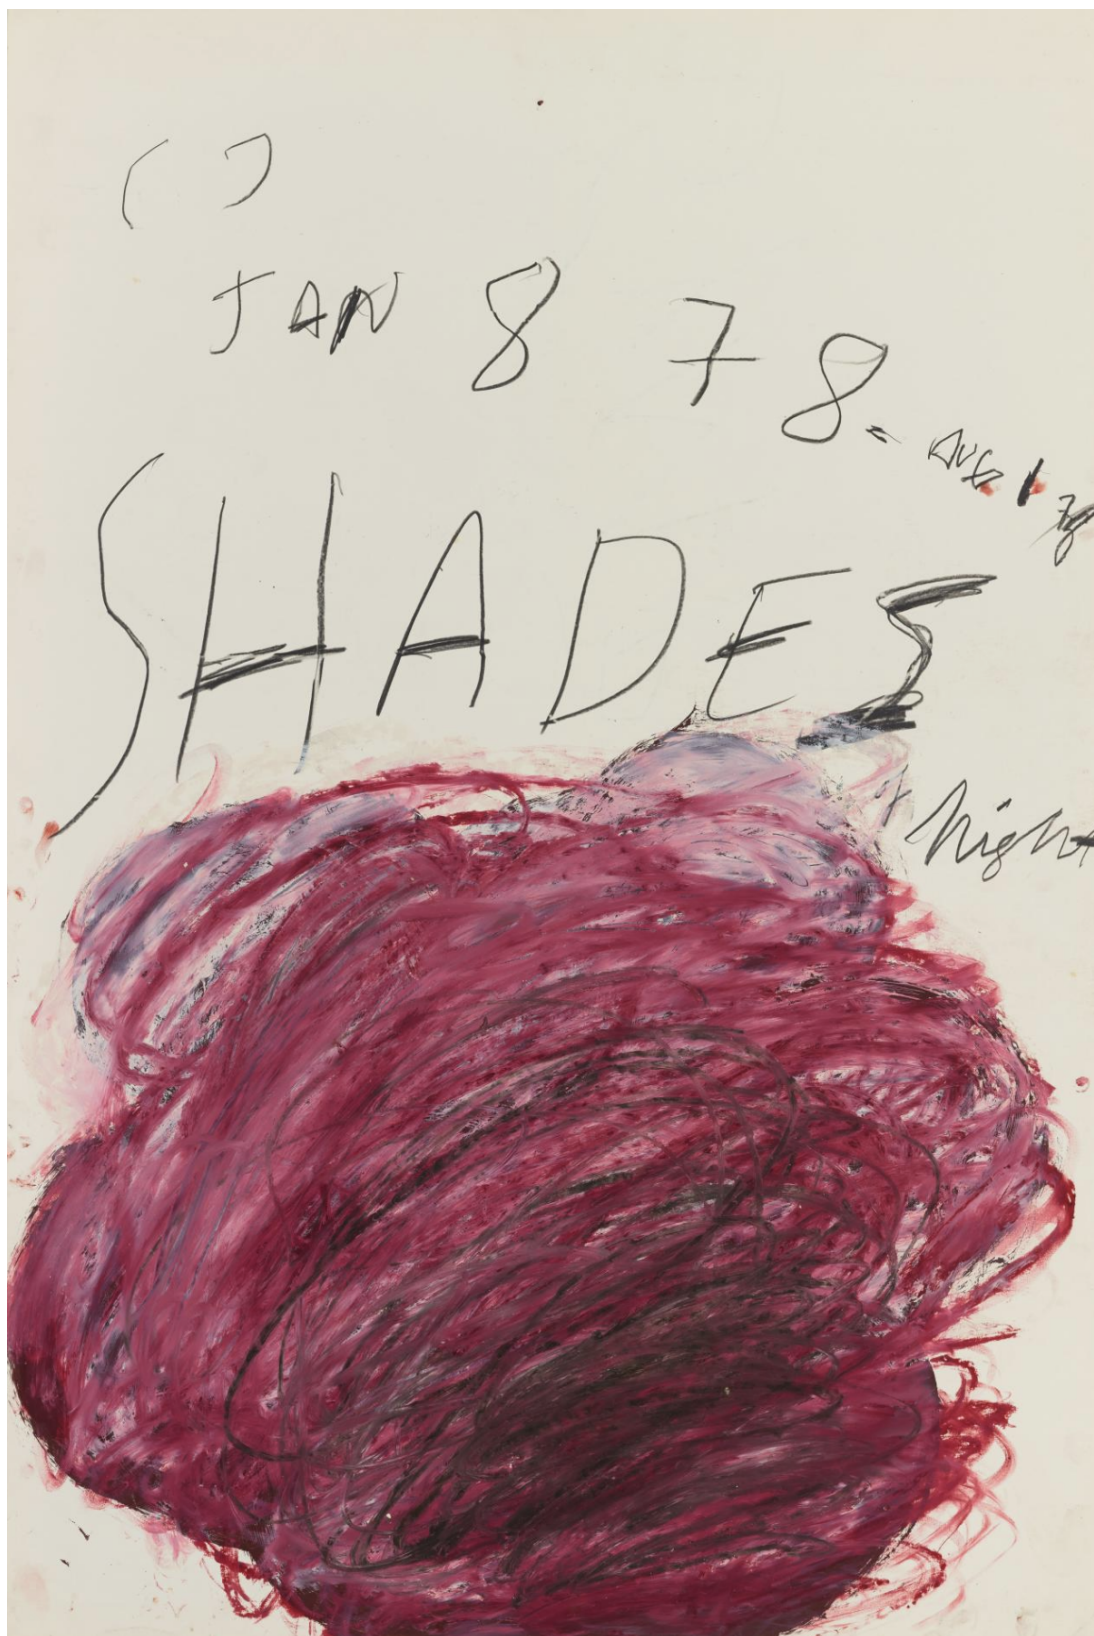 ( )
JAN 8 78 - AUG 1 78
SHADES
of
Night